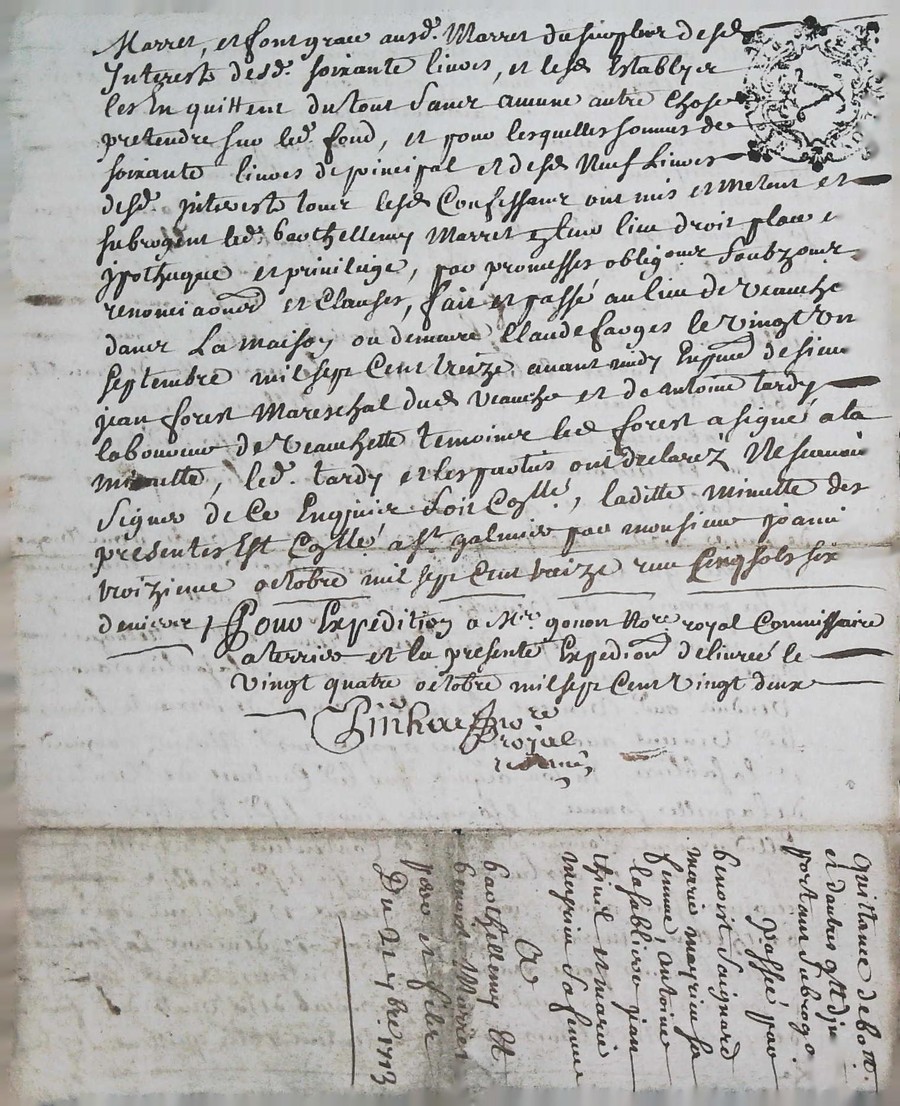 Marret, et font grace ausd. Marret du surplus desd
Interest desd. soixante livres, et lesd Establyes
les En quittent du tout sans aucune autre chose
pretendre sur led. fond, et pour lesquelles sommes de
soixante livres de principal et desd Neuf Livres
desd. interest tous lesd Confessans ont mis et metent et
subrogent led. barthellemy Marret leur lieu droit place et
ypotheque et privilege, par promesses obligeons soubzons
renonciaōns et Clauses, fait et passé au lieu de veauche
dans La maison ou demeure Claude farges le vingt un
septembre mil sept Cent treize avant midy En pnce de sieur
jean forest Mareschal dud veauche et de antoine tardy
laboureur de veauchette temoins led forest a signé a la
minutte, led. tardy et les parties ont declarez Ne scavoir
signer de Ce Enquis soit Collé, laditte minutte des
presentes Est Collé a St galmier par monsieur joanni
troizieme octobre mil sept Cent treize reçu Cinq sols six
deniers Pour Expedition a Mre gonon Nore royal Commissaire
a terrier et la presente Expedion delivreé le
vingt quatre octobre mil sept Cent vingt deux
nore
royal
Quittance de 60 ₶.
et dautres
portant subrogō.
Passé par
benoist Saignard
marie meyrieu sa
femme, antoine
lasabliere jean
et marie
meyrieu sa femme
A
barthellemy et
benoit Marret
pere et fils
Du 21 7bre 1713